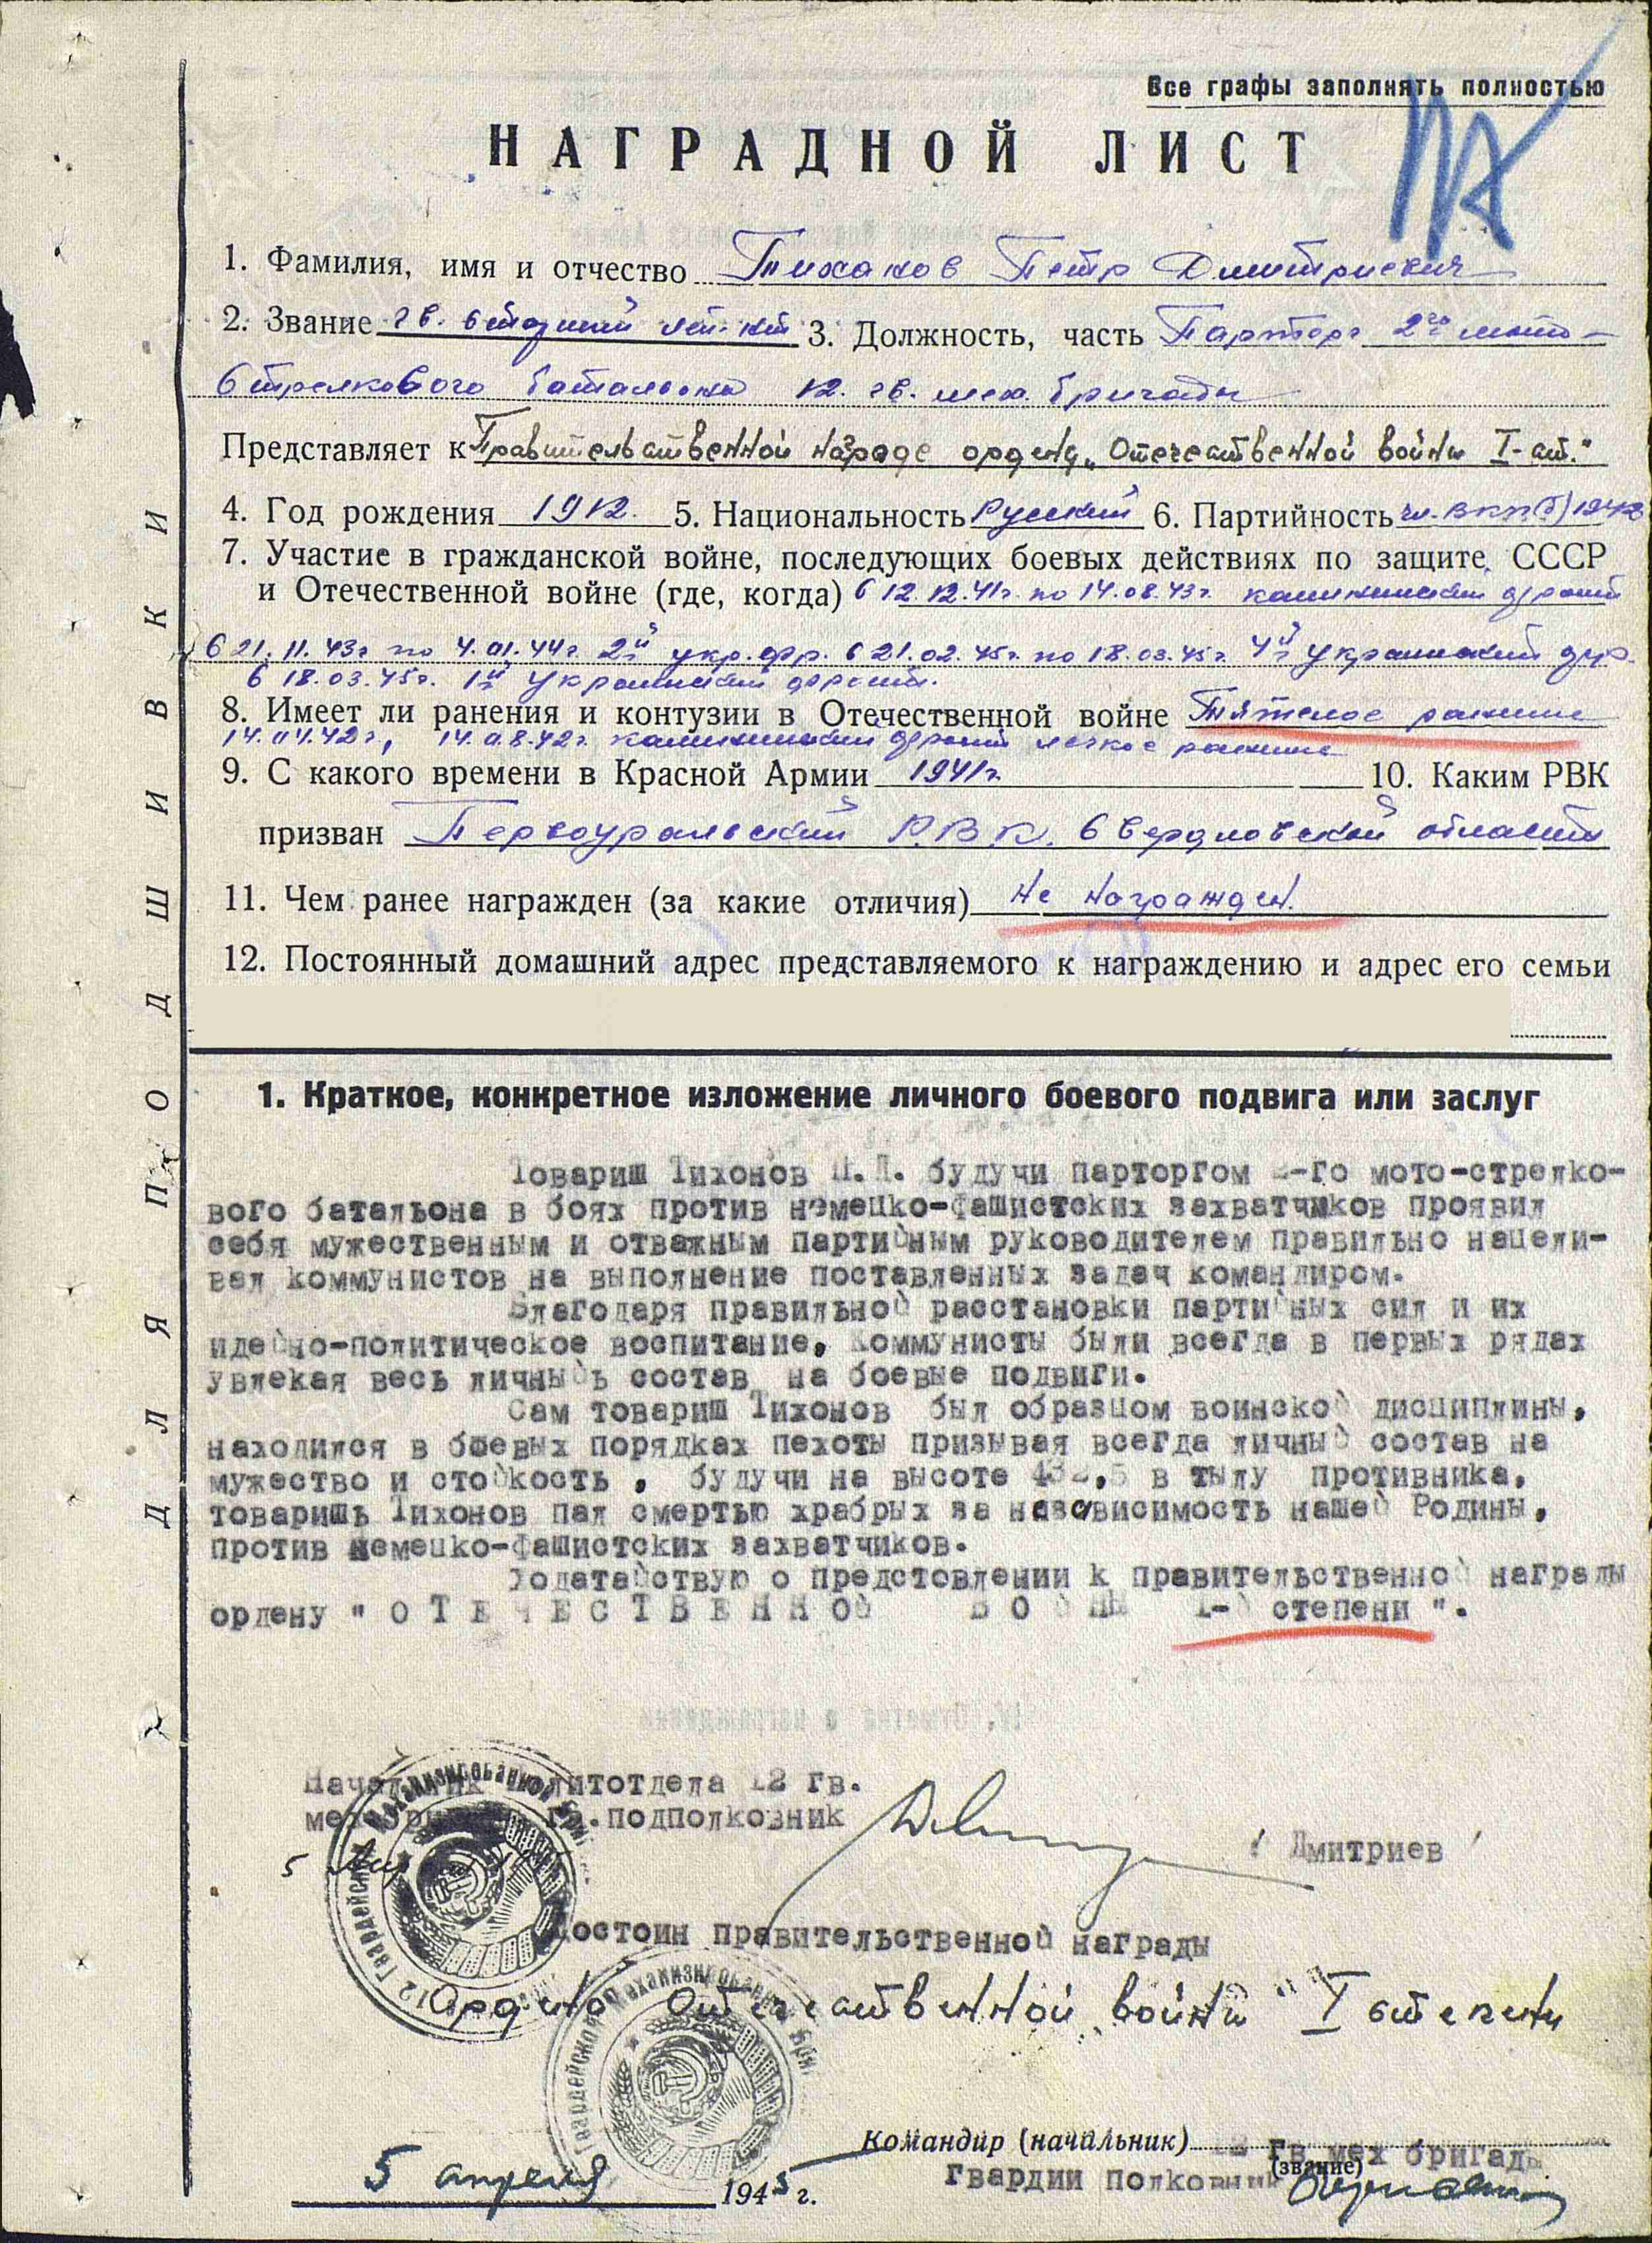 Все графы заполнять полностью
НАГРАДНОЙ ЛИСТ
1. Фамилия, имя и отчество Тихонов Петр Дмитриевич
2. Звание гв. старший лей-нт 3. Должность, часть Парторг 2го мото-
стрелкового батальона 12. гв. мех. бригады
Представляет к Правительственной награде ордену „Отечественной войны I-ст."
4. Год рождения 1912. 5. Национальность Русский 6. Партийность чл. ВКП(б) 1942
7. Участие в гражданской войне, последующих боевых действиях по защите СССР
и Отечественной войне (где, когда) с 12.12.41г. по 14.08.43г. калининский фронт
с 21.11.43г по 4.01.44г. 2й укр. фр. с 21.02.45г. по 18.03.45г. 4й Украинский фр.
с 18.03.45г. 1й Украинский фронт.
8. Имеет ли ранения и контузии в Отечественной войне Тяжелое ранение
14.04.42г, 14.08.42г. калининский фронт легкое ранение
9. С какого времени в Красной Армии 1941г. 10. Каким РВК
призван Первоуральский Р.В.К. Свердловской области
11. Чем ранее награжден (за какие отличия) Не награжден.
12. Постоянный домашний адрес представляемого к награждению и адрес его семьи
ДЛЯ ПОДШИВКИ
1. Краткое, конкретное изложение личного боевого подвига или заслуг
Товариш Тихонов П.Д. будучи парторгом 2-го мото-стрелко-
вого батальона в боях против немецко-фашистских захватчиков проявил
себя мужественным и отважным партийным руководителем правильно нацели-
вал коммунистов на выполнение поставленных задач командиром.
Благодаря правильной расстановки партийных сил и их
идейно-политическое воспитание, Коммунисты были всегда в первых рядах
увлекая весь личныйь состав на боевые подвиги.
Сам товариш Тихонов был образцом воинской дисциплины,
находился в боевых порядках пехоты призывая всегда личный состав на
мужество и стойкость , будучи на высоте 432,5 в тылу противника,
товаришь Тихонов пал смертью храбрых за независимость нашей Родины,
против немецко-фашистских захватчиков.
Ходатайствую о предстовлении к правительственной награды
ордену " О Т Е Ч Е С Т В Е Н Н ОЙ В О Й НЫ 1-й степени ".
Начальник политотдела 12 гв.
мех бригады гв.подполковник
/ Дмитриев /
5 Апреля
Достоин правительственной награды
Ордена Отечественной „войны" I степени
Командир (начальник) 12 Гв мех бригады
(звание)
Гвардии Полковник
5 апреля 1945 г.